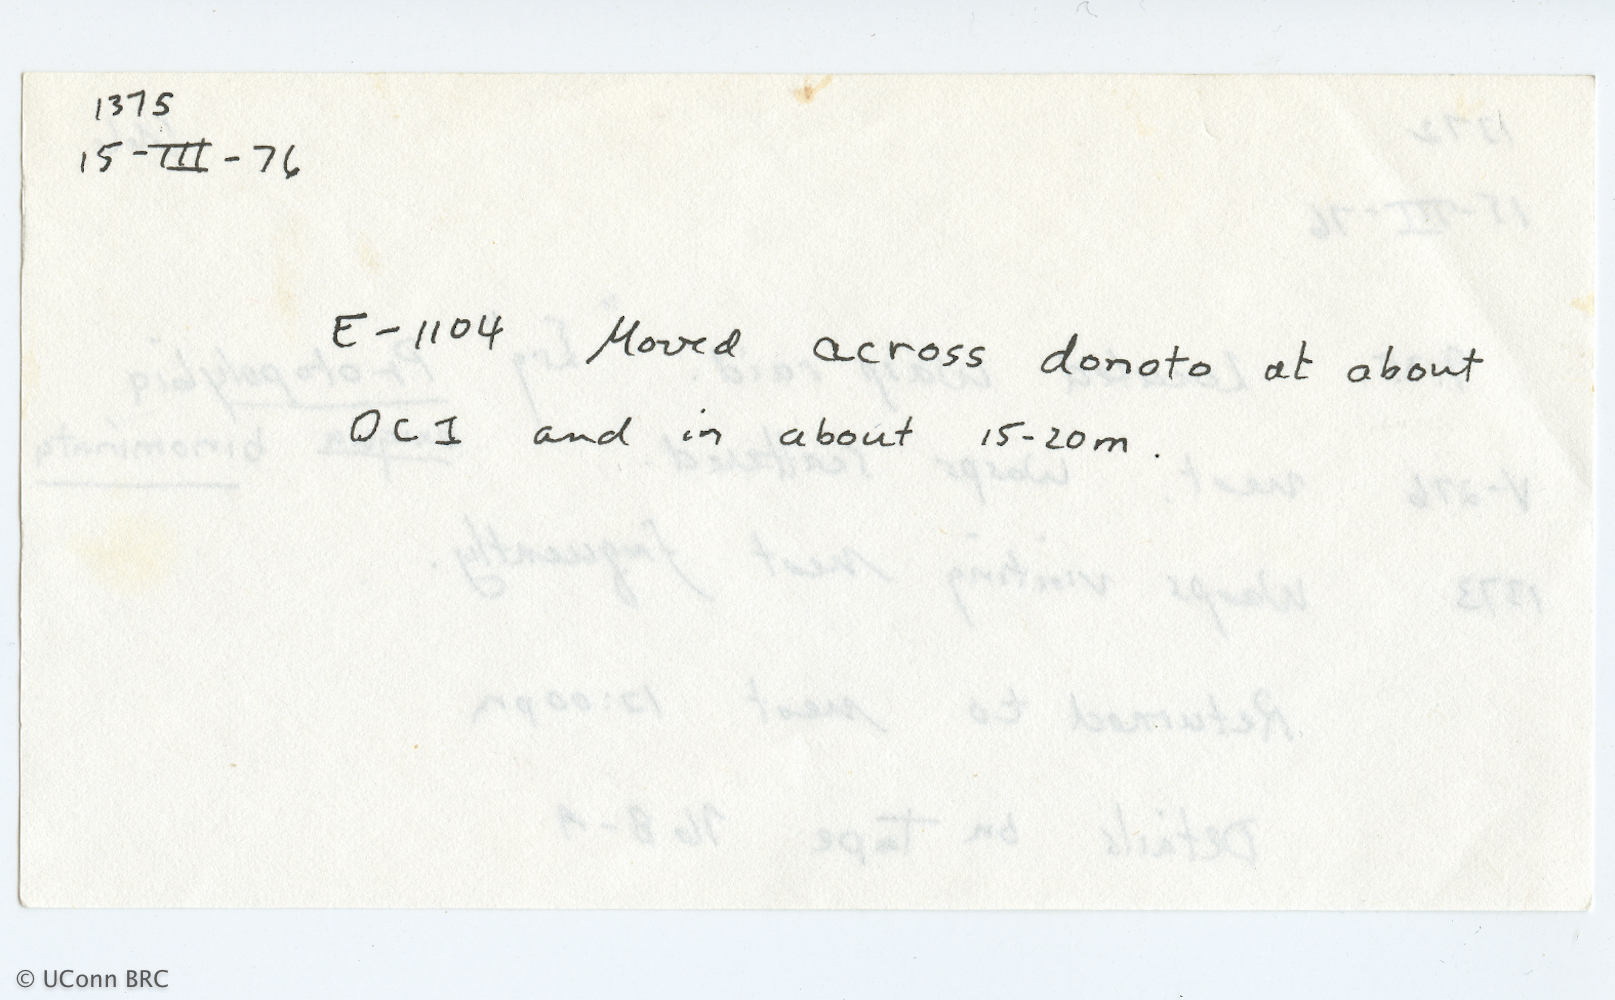 1375
15-III-76
E-1104 Moved across donoto at about
OCI and in about 15-20m.
© UConn BRC